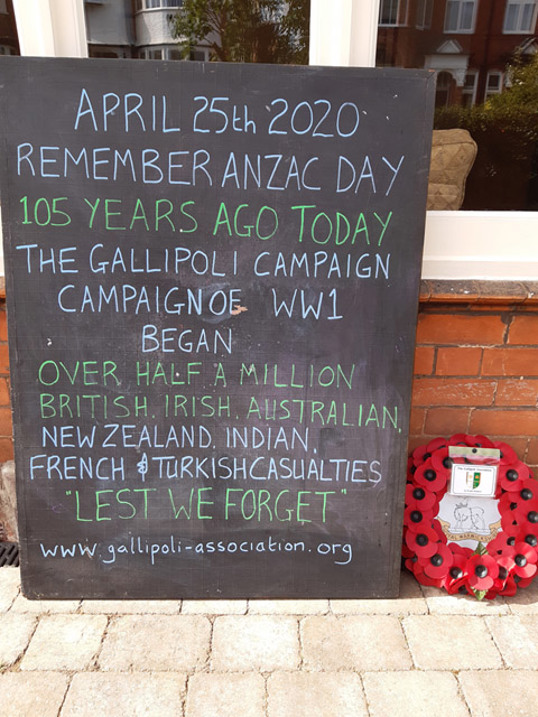 APRIL 25th 2020
REMEMBER ANZAC DAY
105 YEARS AGO TODAY
THE GALLIPOLI CAMPAIGN
CAMPAIGN OF WW1
BEGAN
OVER HALF A MILLION
BRITISH, IRISH, AUSTRALIAN,
NEW ZEALAND, INDIAN,
FRENCH & TURKISH CASUALTIES
"LEST WE FORGET"
www.gallipoli-association.org